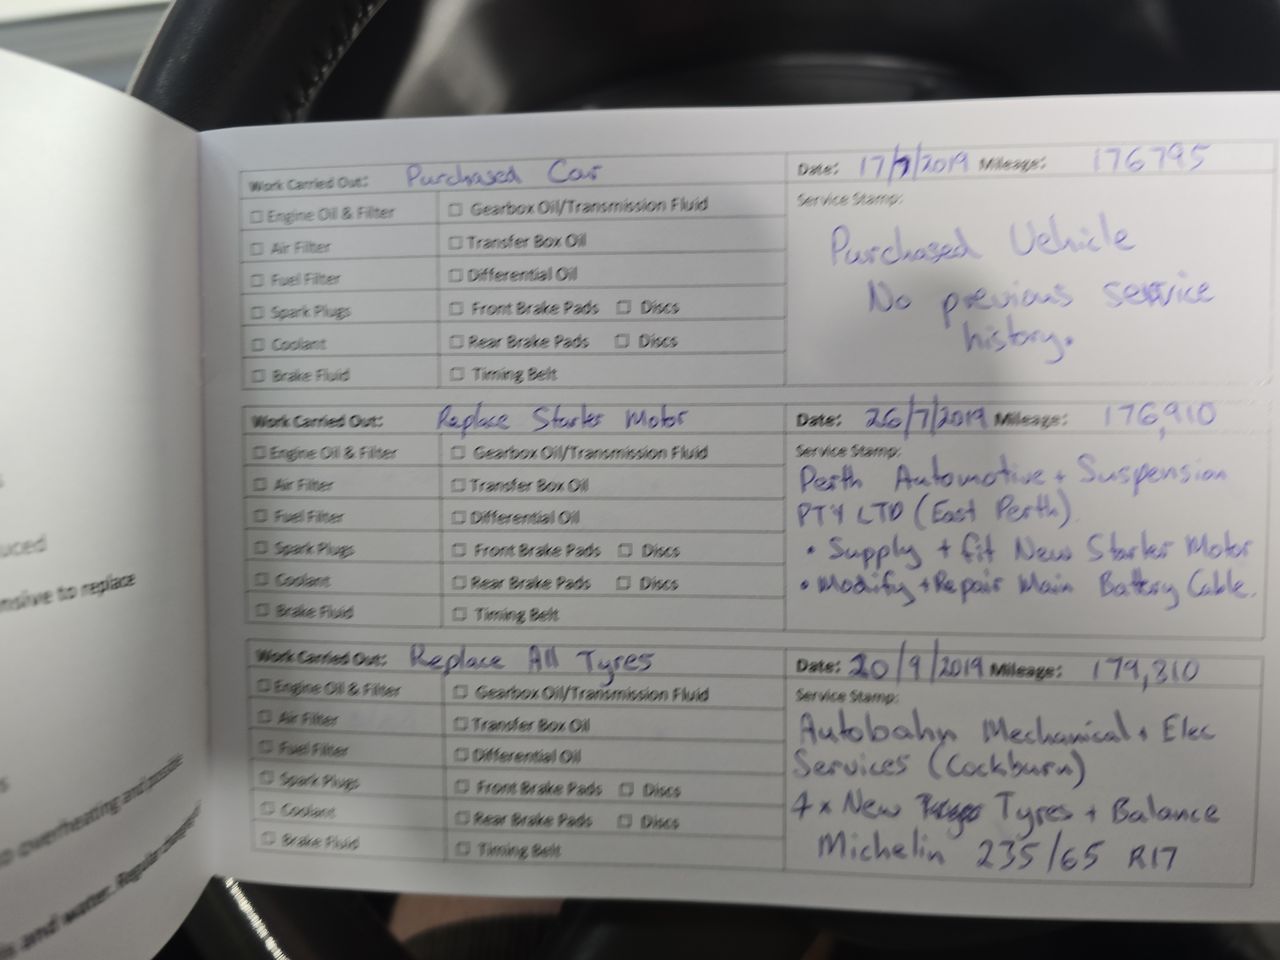 Work Carried Out: Purchased Car
Date: 17/7/2019 Mileage: 176795
Engine Oil & Filter Gearbox Oil/Transmission Fluid
Air Filter Transfer Box Oil
Fuel Filter Differential Oil
Spark Plugs Front Brake Pads Discs
Coolant Rear Brake Pads Discs
Brake Fluid Timing Belt
Service Stamp:
Purchased Vehicle
No previous service
history.
Work Carried Out: Replace Starter Motor
Date: 26/7/2019 Mileage: 176,910
Engine Oil & Filter Gearbox Oil/Transmission Fluid
Air Filter Transfer Box Oil
Fuel Filter Differential Oil
Spark Plugs Front Brake Pads Discs
Coolant Rear Brake Pads Discs
Brake Fluid Timing Belt
Service Stamp:
Perth Automotive + Suspension
PTY LTD (East Perth)
• Supply + fit New Starter Motor
• Modify + Repair Main Battery Cable.
Work Carried Out: Replace All Tyres
Date: 20/9/2019 Mileage: 179,310
Engine Oil & Filter Gearbox Oil/Transmission Fluid
Air Filter Transfer Box Oil
Fuel Filter Differential Oil
Spark Plugs Front Brake Pads Discs
Coolant Rear Brake Pads Discs
Brake Fluid Timing Belt
Service Stamp:
Autobahn Mechanical + Elec
Services (Cockburn)
4 x New Tyres + Balance
Michelin 235/65 R17
uced
nsive to replace
o overheating and possible
ls and water. Regular